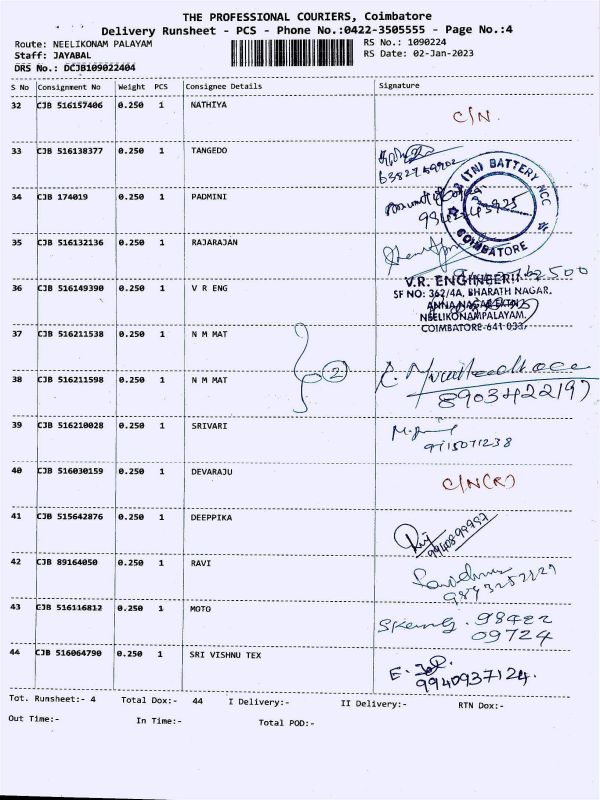 THE PROFESSIONAL COURIERS, Coimbatore
Delivery Runsheet - PCS - Phone No.:0422-3505555 - Page No.:4
Route: NEELIKONAM PALAYAM
RS No.: 1090224
Staff: JAYABAL
RS Date: 02-Jan-2023
DRS No.: DCJB109022404
S No Consignment No Weight PCS Consignee Details Signature
32 CJB 516157406 0.250 1 NATHIYA C/N
33 CJB 516138377 0.250 1 TANGEDO
34 CJB 174019 0.250 1 PADMINI
BATTERY
COIMBATORE
35 CJB 516132136 0.250 1 RAJARAJAN
36 CJB 516149390 0.250 1 V R ENG
SF NO: 362/4A, BHARATH NAGAR.
NEELIKONAMPALAYAM.
COIMBATORE-641 033.
37 CJB 516211538 0.250 1 N M MAT
2
38 CJB 516211598 0.250 1 N M MAT
8903422197
39 CJB 516210028 0.250 1 SRIVARI
9715071238
40 CJB 516030159 0.250 1 DEVARAJU C/N(R)
41 CJB 515642876 0.250 1 DEEPPIKA
42 CJB 89164050 0.250 1 RAVI
43 CJB 516116812 0.250 1 MOTO
98422
09724
44 CJB 516064790 0.250 1 SRI VISHNU TEX
9940937124.
Tot. Runsheet:- 4 Total Dox:- 44 I Delivery:- II Delivery:- RTN Dox:-
Out Time:- In Time:- Total POD:-